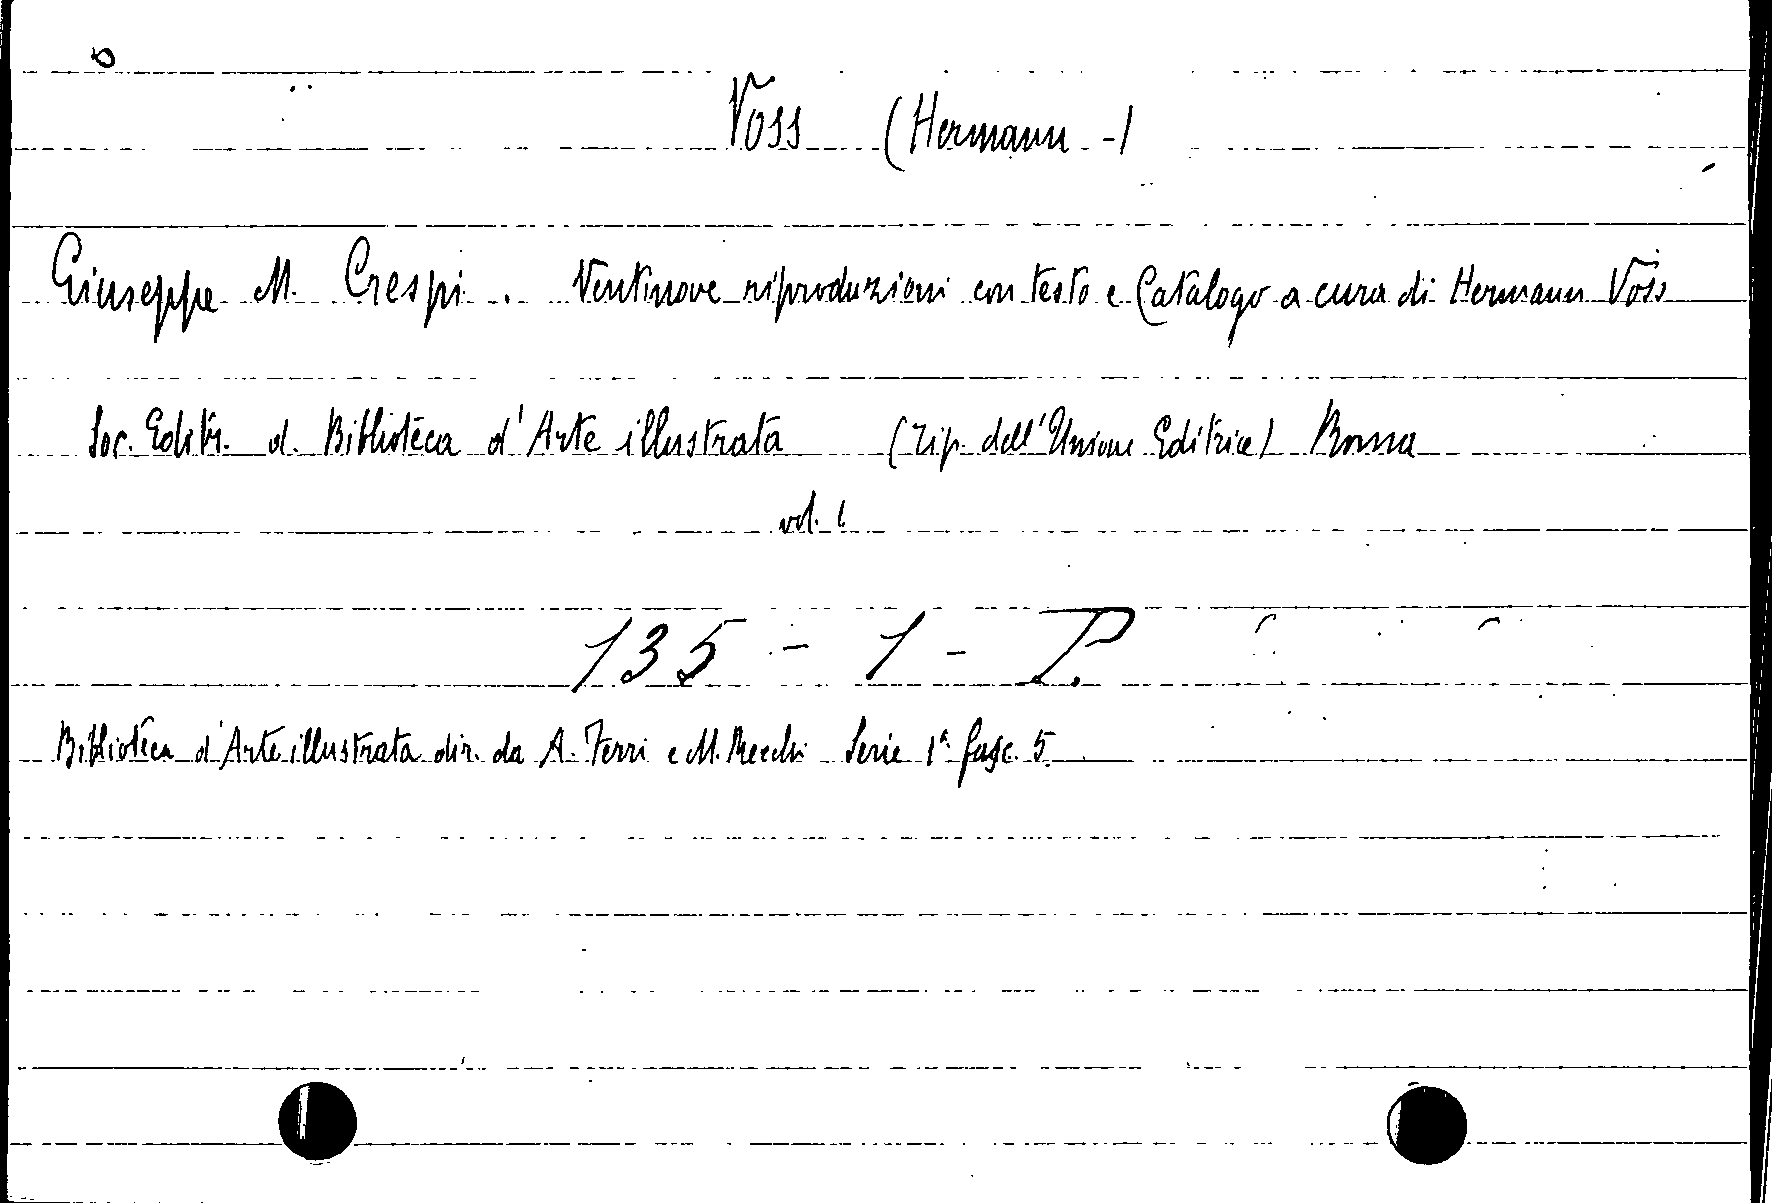 Voss (Hermann -)
Giuseppe M. Crespi. Ventinove riproduzioni con testo e Catalogo a cura di Hermann Voss
Soc. Editr. d. Biblioteca d'Arte illustrata (tip. dell'Unione Editrice) Roma
vol. 1
135 - 1 - P.
Biblioteca d'Arte illustrata dir. da A. Ferri e M. Recchi Serie 1ª fasc. 5.